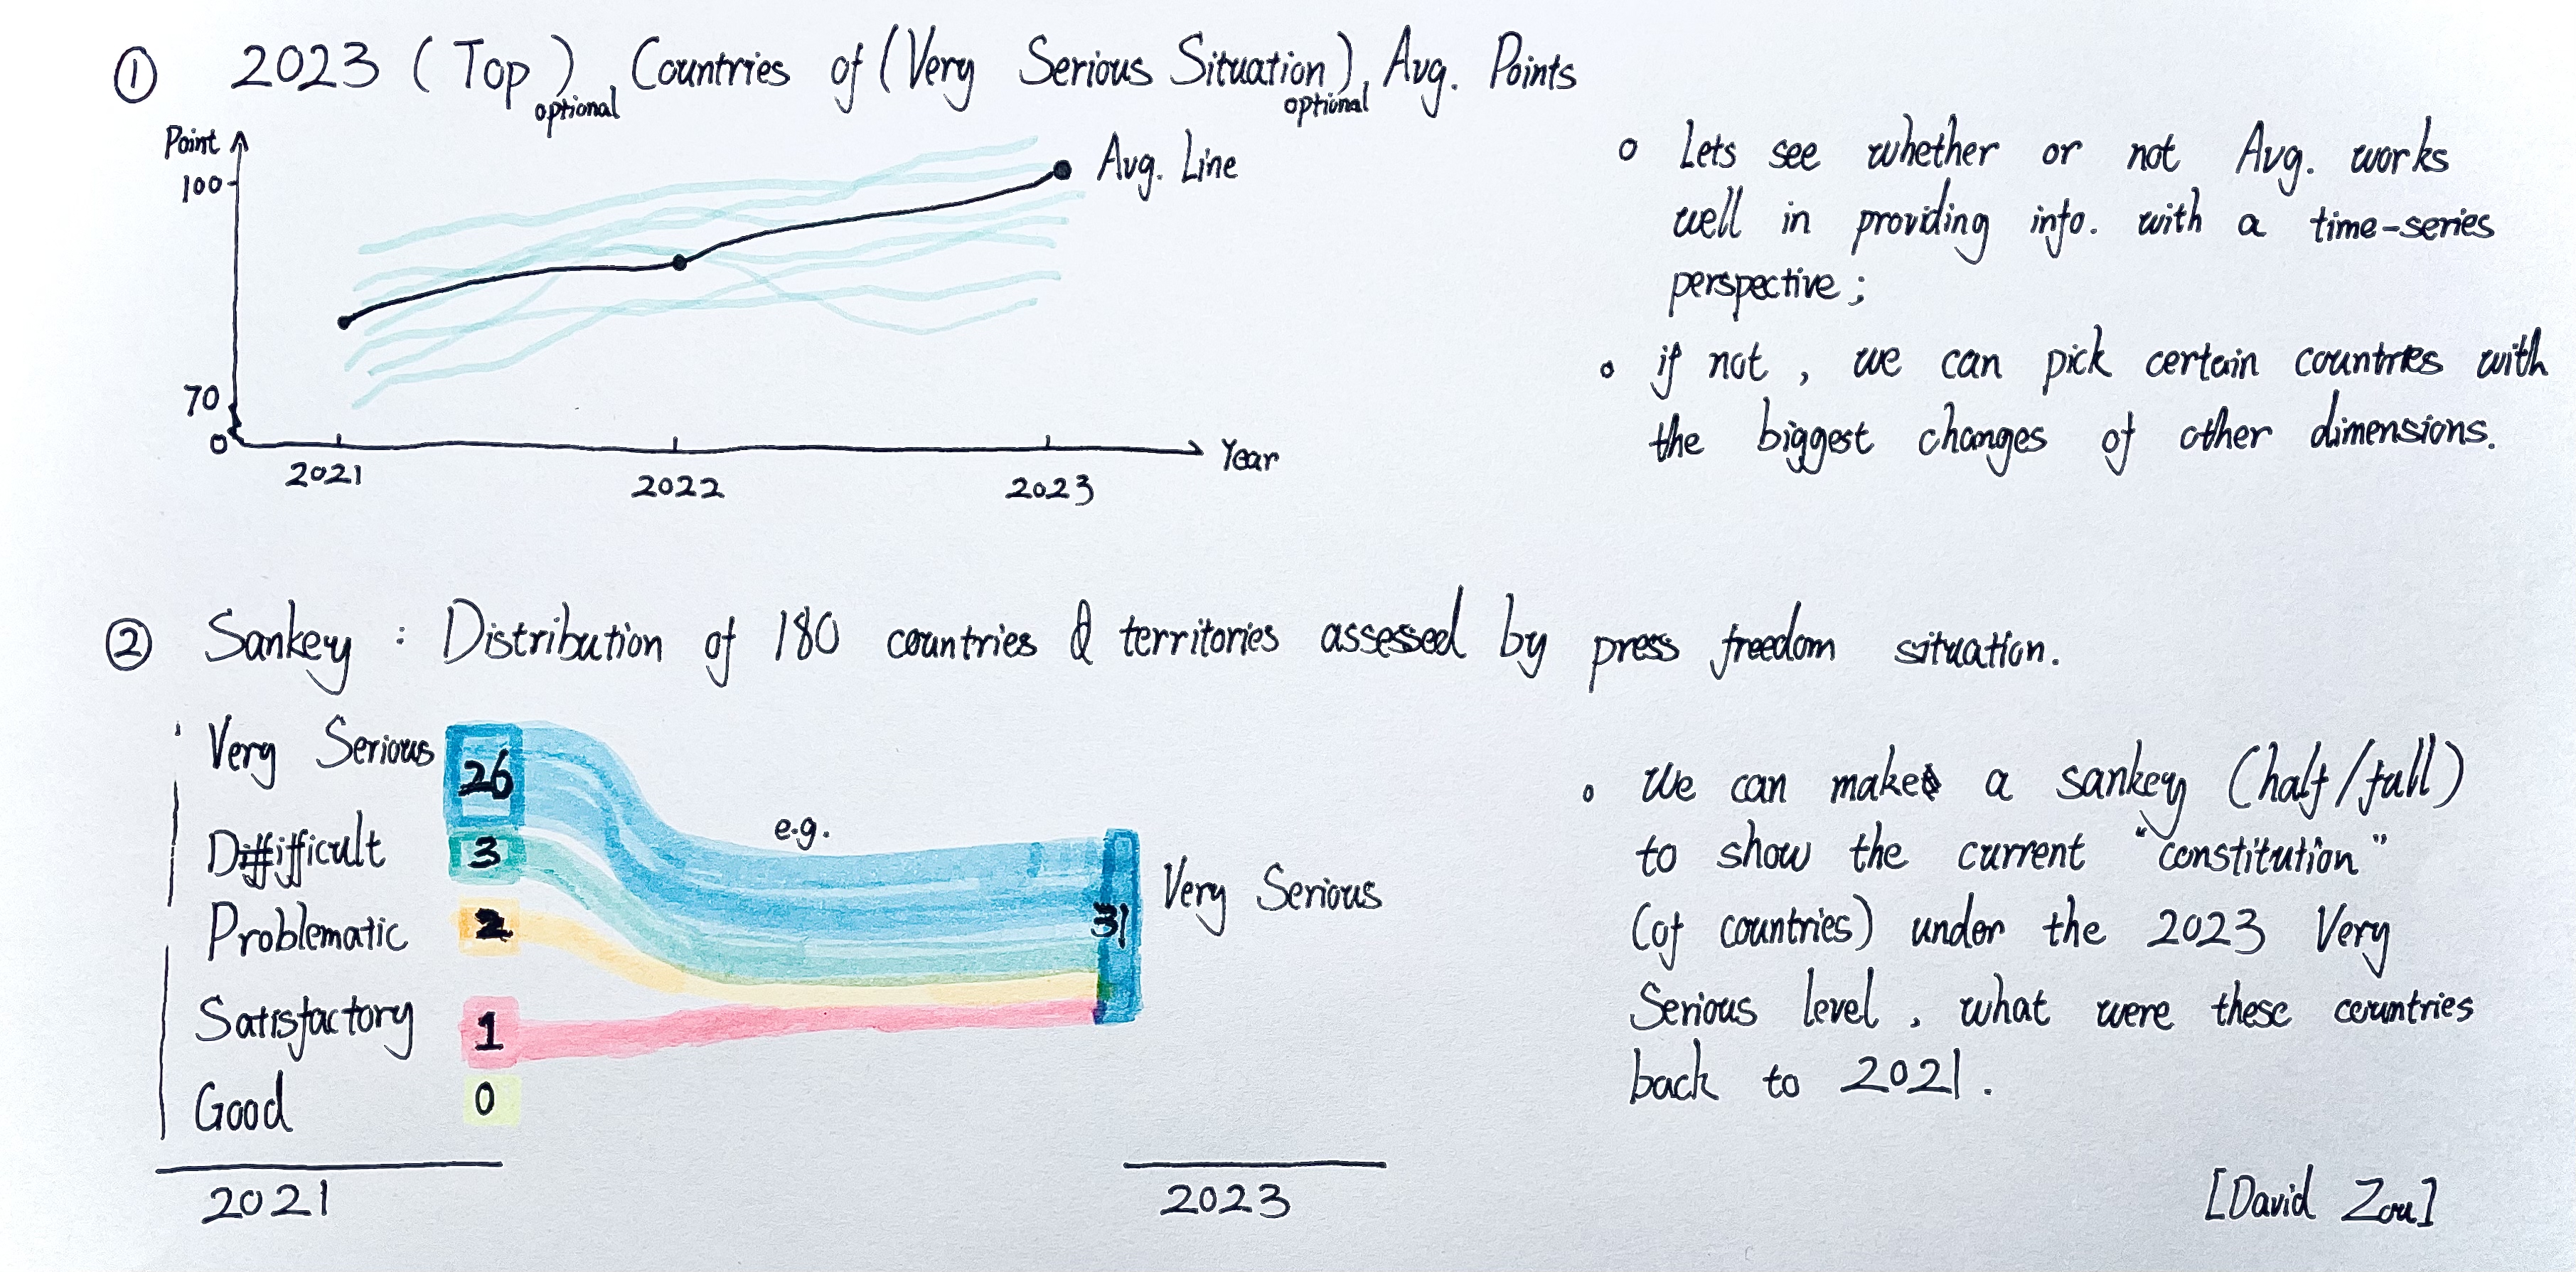 ① 2023 (Top) optional Countries of (Very Serious Situation) optional Avg. Points
Point
100
70
0
2021
2022
2023
Year
Avg. Line
o Lets see whether or not Avg. works
well in providing info. with a time-series
perspective;
o if not, we can pick certain countries with
the biggest changes of other dimensions.
② Sankey : Distribution of 180 countries & territories assessed by press freedom situation.
Very Serious 26
Difficult 3
Problematic 2
Satisfactory 1
Good 0
e.g.
31 Very Serious
2021
2023
o We can make a sankey (half/full)
to show the current "constitution"
(of countries) under the 2023 Very
Serious level, what were these countries
back to 2021.
[David Zou]